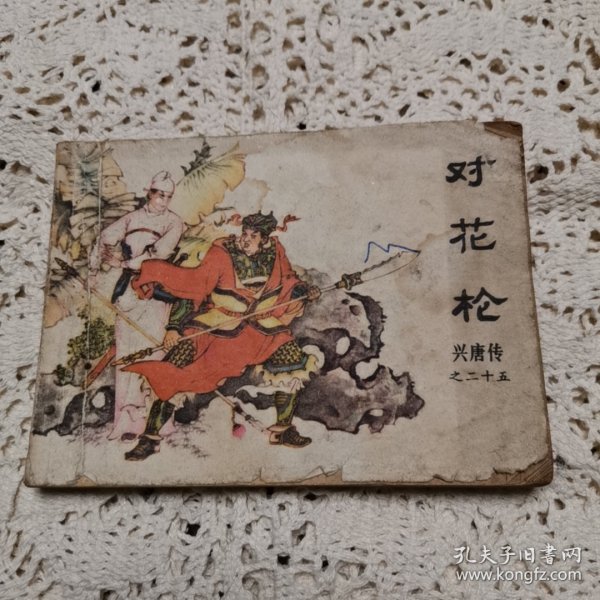 对花枪
兴唐传
之二十五
孔夫子旧書网
www.kongfz.com